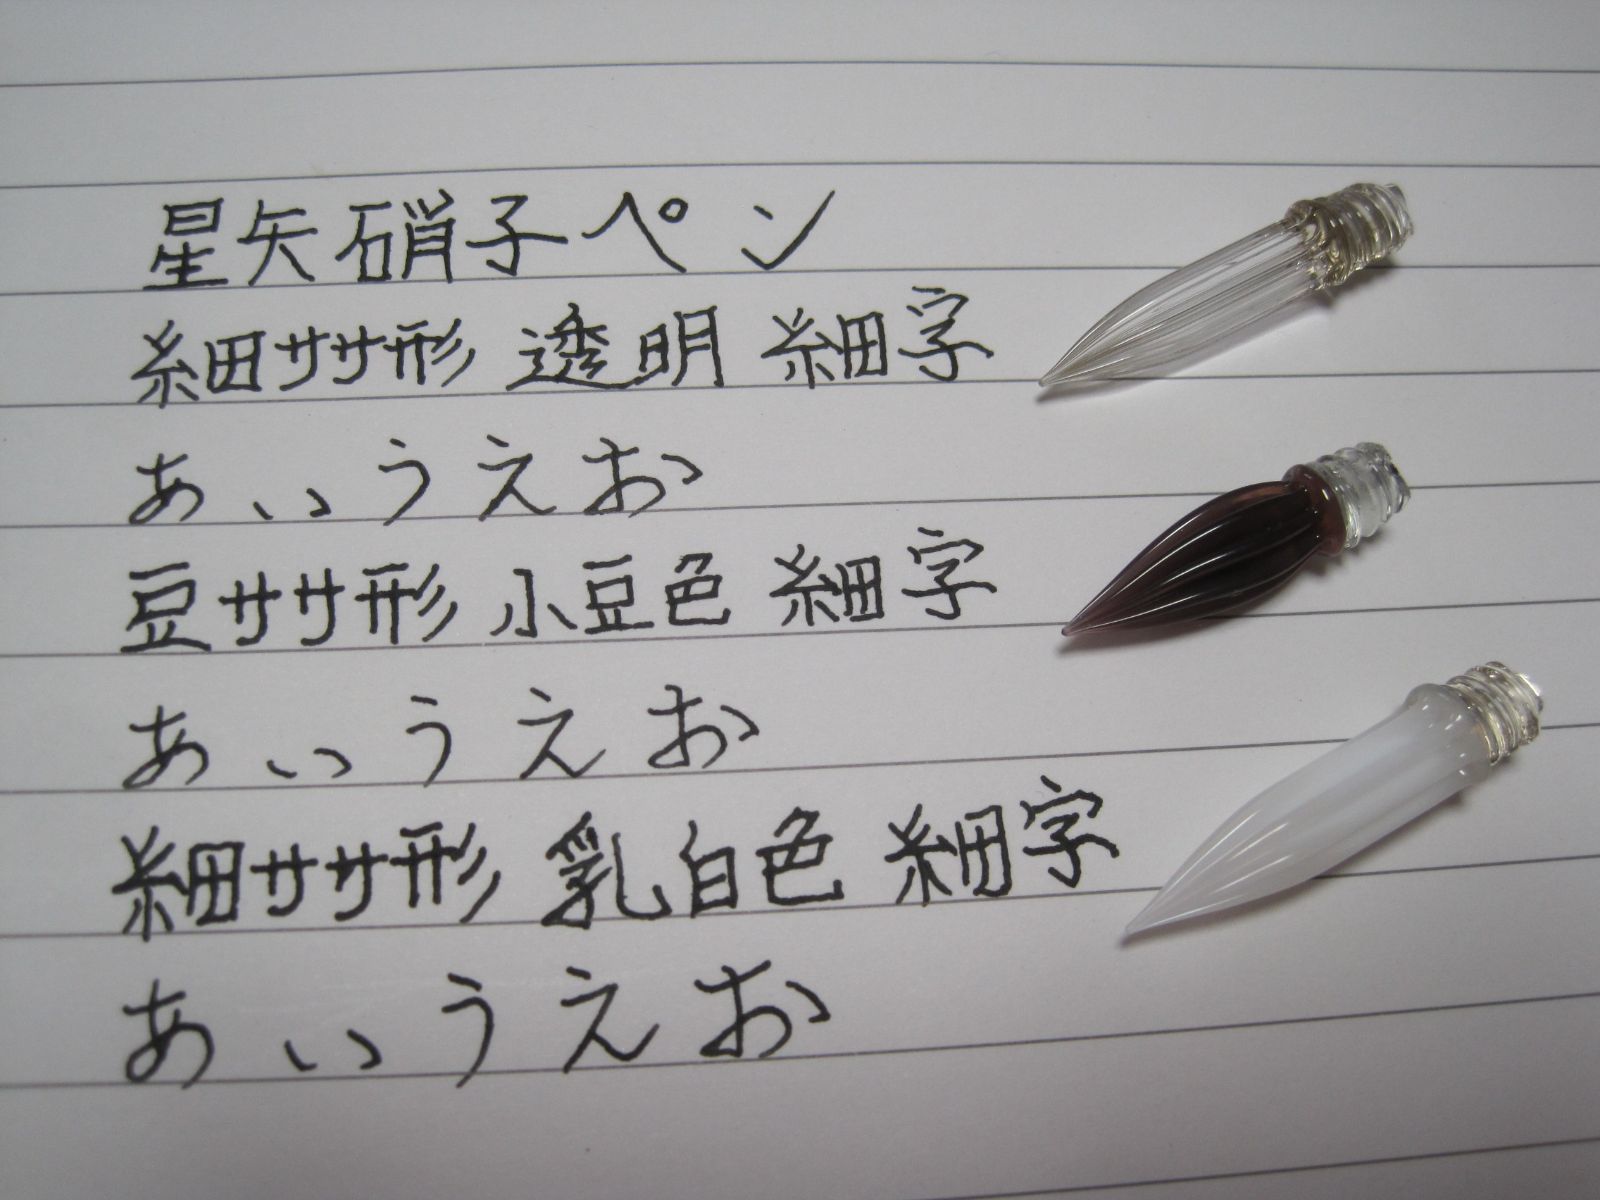 星矢硝子ペン
細ササ形 透明 細字
あいうえお
豆ササ形 小豆色 細字
あいうえお
細ササ形 乳白色 細字
あいうえお